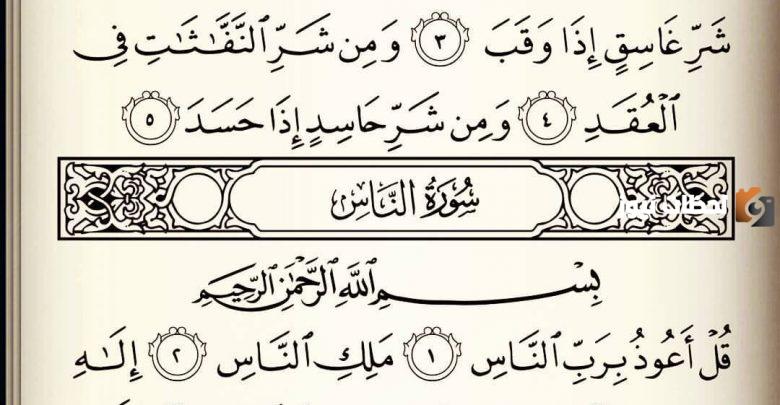 شَرِّ غَاسِقٍ إِذَا وَقَبَ ٣ وَمِن شَرِّ ٱلنَّفَّٰثَٰتِ فِي
ٱلْعُقَدِ ٤ وَمِن شَرِّ حَاسِدٍ إِذَا حَسَدَ ٥
سُورَةُ النَّاسِ
بِسْمِ ٱللَّهِ ٱلرَّحْمَٰنِ ٱلرَّحِيمِ
قُلْ أَعُوذُ بِرَبِّ ٱلنَّاسِ ١ مَلِكِ ٱلنَّاسِ ٢ إِلَٰهِ